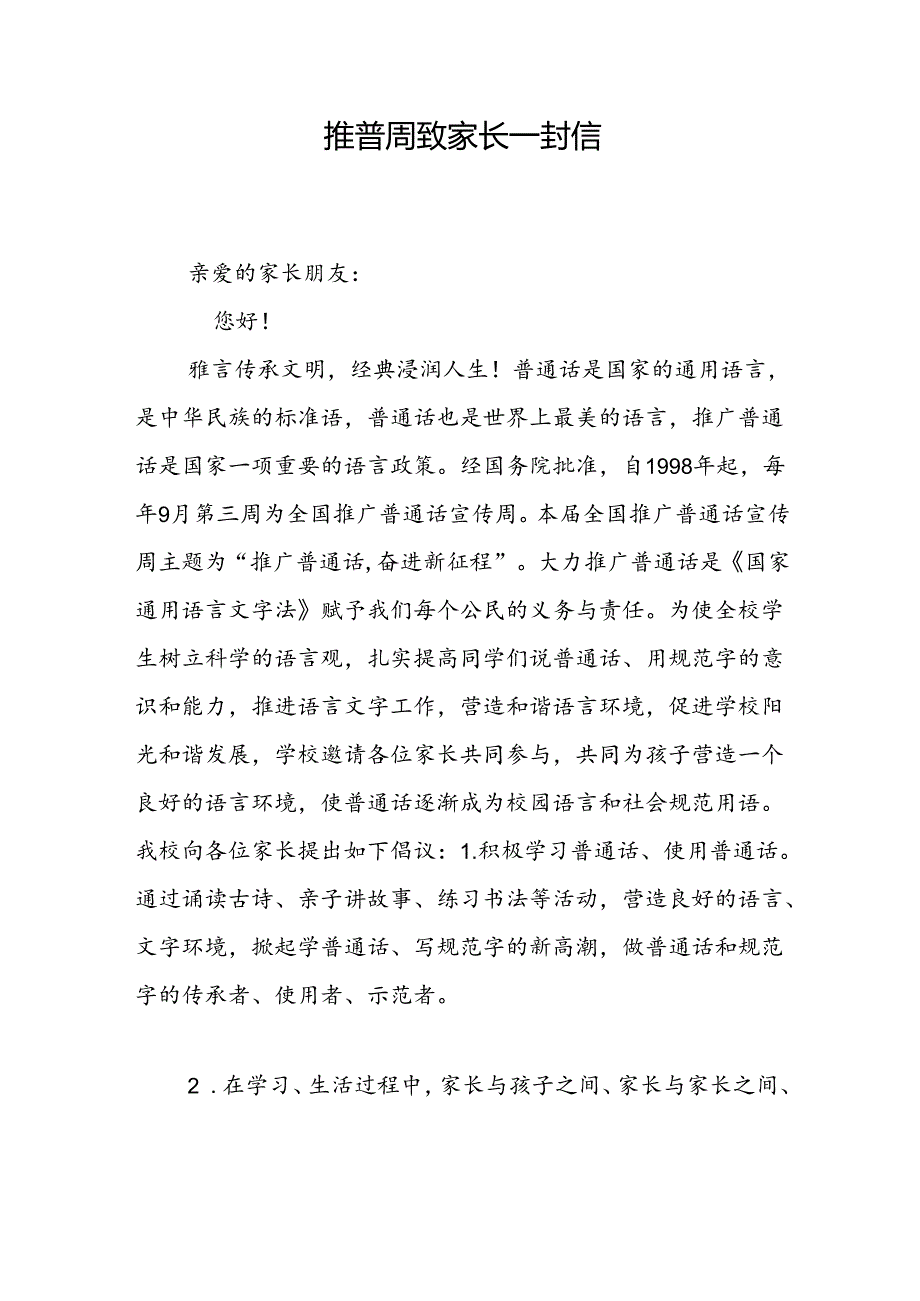 推普周致家长一封信
亲爱的家长朋友：
您好！
雅言传承文明，经典浸润人生！普通话是国家的通用语言，
是中华民族的标准语，普通话也是世界上最美的语言，推广普通
话是国家一项重要的语言政策。经国务院批准，自1998年起，每
年9月第三周为全国推广普通话宣传周。本届全国推广普通话宣传
周主题为“推广普通话,奋进新征程”。大力推广普通话是《国家
通用语言文字法》赋予我们每个公民的义务与责任。为使全校学
生树立科学的语言观，扎实提高同学们说普通话、用规范字的意
识和能力，推进语言文字工作，营造和谐语言环境，促进学校阳
光和谐发展，学校邀请各位家长共同参与，共同为孩子营造一个
良好的语言环境，使普通话逐渐成为校园语言和社会规范用语。
我校向各位家长提出如下倡议：1.积极学习普通话、使用普通话。
通过诵读古诗、亲子讲故事、练习书法等活动，营造良好的语言、
文字环境，掀起学普通话、写规范字的新高潮，做普通话和规范
字的传承者、使用者、示范者。
2 .在学习、生活过程中，家长与孩子之间、家长与家长之间、